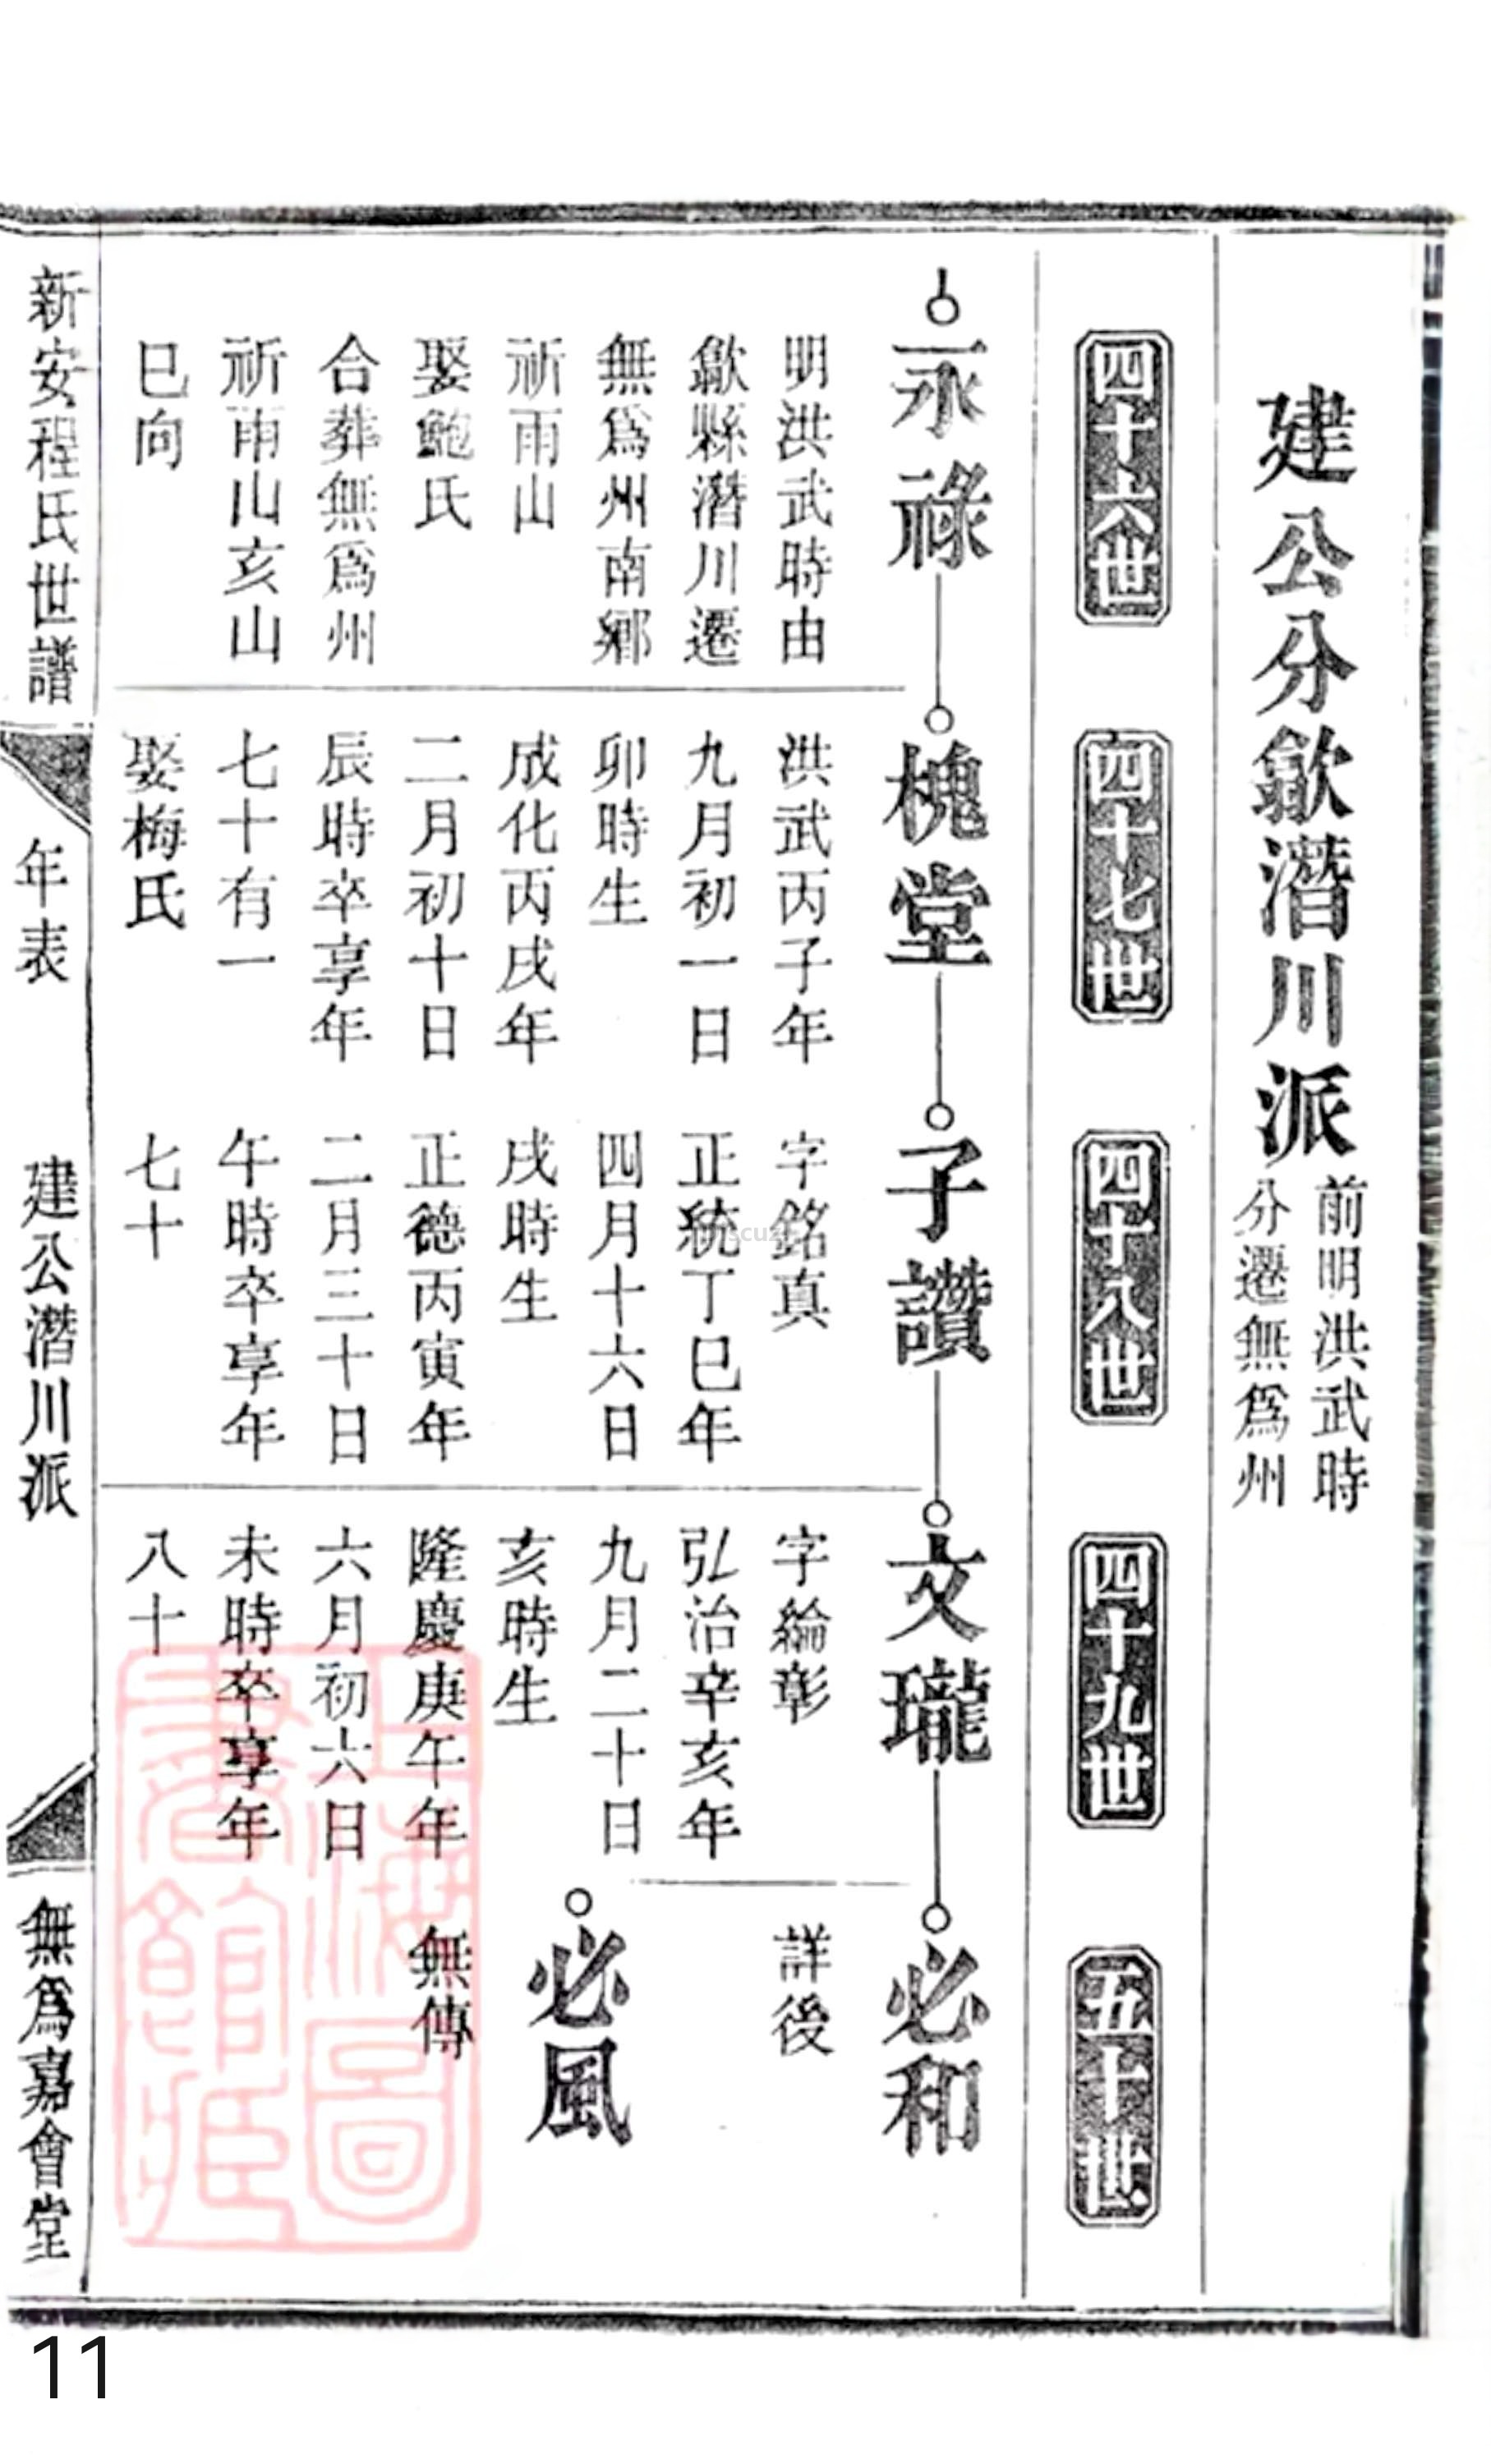 建公分歙潛川派
前明洪武時
分遷無爲州
四十六世
四十七世
四十八世
四十九世
五十世
永祿
明洪武時由
歙縣潛川遷
無爲州南鄉
祈雨山
娶鮑氏
合葬無爲州
祈雨山亥山
巳向
槐堂
洪武丙子年
九月初一日
卯時生
成化丙戌年
二月初十日
辰時卒享年
七十有一
娶梅氏
子讚
字銘真
正統丁巳年
四月十六日
戌時生
正德丙寅年
二月三十日
午時卒享年
七十
文瓏
字綸彰
弘治辛亥年
九月二十日
亥時生
隆慶庚午年
六月初六日
未時卒享年
八十
必和
詳後
必風
無傳
新安程氏世譜
年表
建公潛川派
無爲嘉會堂
上海圖
書館藏
11